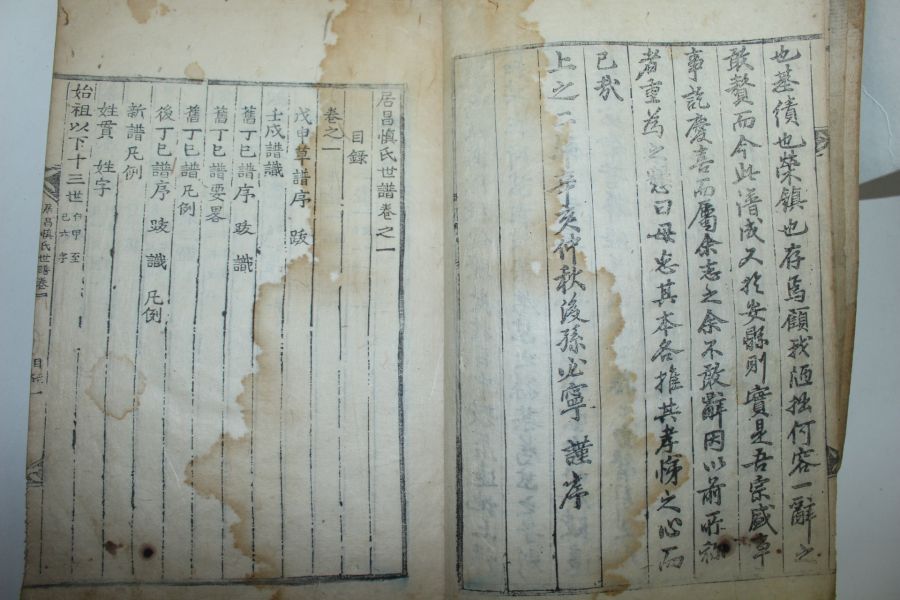 也基績也榮鎮也存焉顧我陋拙何容一辭之
敢贅而今此譜成又於安縣則實是吾宗盛事
事訖慶喜而屬余志之余不敢辭因以前所稱
者重爲之言曰毋忘其本各推其孝悌之心而
已哉
上之二 年辛亥仲秋後孫必寧謹序
居昌愼氏世譜卷之一
目錄
卷之一
戊申草譜序 跋
壬戌譜識
舊丁巳譜序 跋 識
舊丁巳譜要畧
舊丁巳譜凡例
後丁巳譜序 跋 識 凡例
新譜凡例
姓貫 姓字
始祖以下十三世 自甲至己六字
居昌愼氏世譜卷一 目錄 一